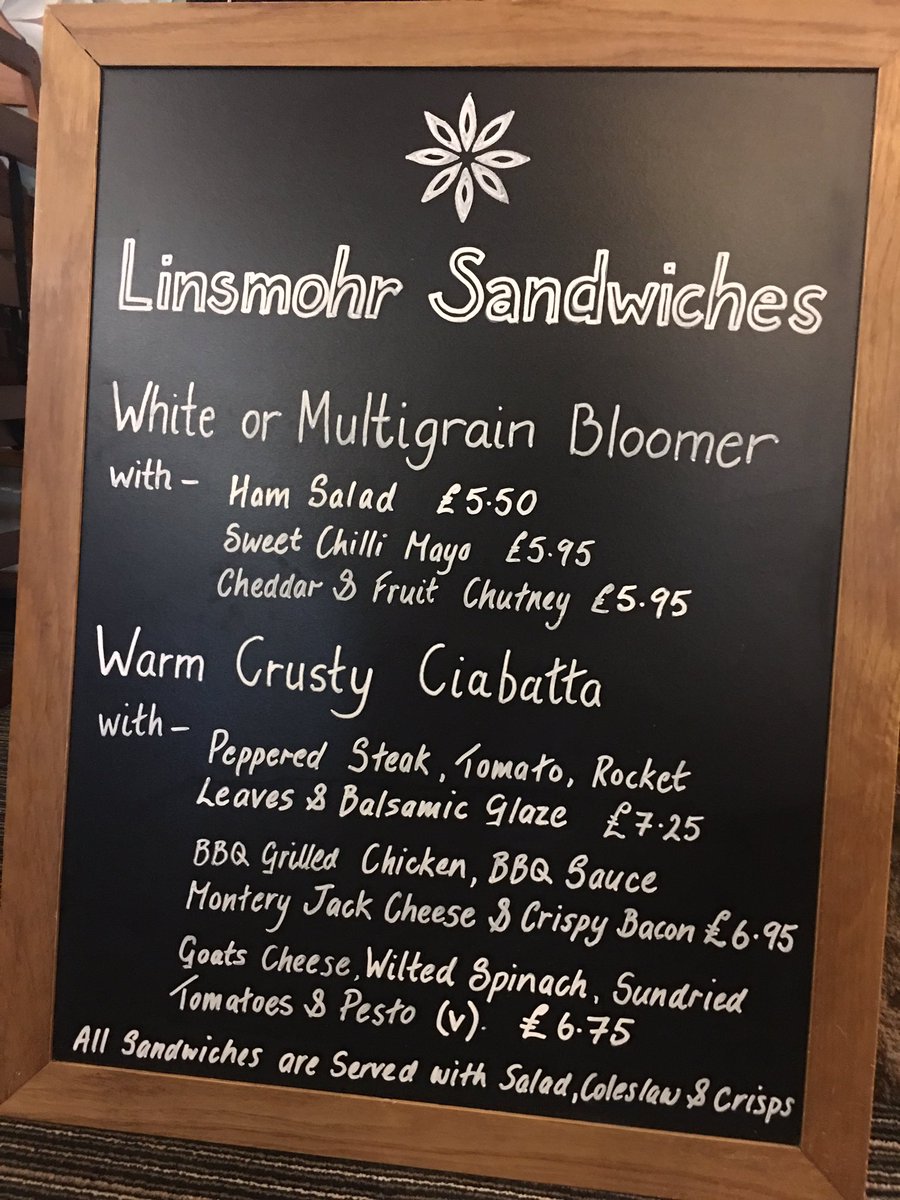 Linsmohr Sandwiches
White or Multigrain Bloomer
with - Ham Salad £5.50
Sweet Chilli Mayo £5.95
Cheddar & Fruit Chutney £5.95
Warm Crusty Ciabatta
with - Peppered Steak, Tomato, Rocket
Leaves & Balsamic Glaze £7.25
BBQ Grilled Chicken, BBQ Sauce
Montery Jack Cheese & Crispy Bacon £6.95
Goats Cheese, Wilted Spinach, Sundried
Tomatoes & Pesto (v). £6.75
All Sandwiches are Served with Salad, Coleslaw & Crisps